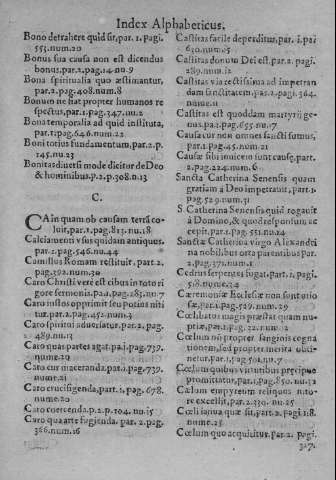 Index Alphabeticus.
Bono detrahere quid sit, par. 1. pagi.
553. num. 20
Bonus sua causa non est dicendus
bonus, par. 2. pag. 14. no. 9
Bona spiritualia quo æstimantur,
par. 2. pag. 408. num. 8
Bonum ne fiat propter humanos re
spectus, par. 1. pag. 347. nu. 2
Bona temporalia ad quid instituta,
par. 1. pag. 646. num. 22
Boni totius fundamentum, par. 2. p.
145. nu. 23
Bonitas duersi mode dicitur de Deo
& hominibus, p. 2. p. 308. n. 13
C.
CAin quam ob causam terrã co-
luit, par. 1. pag. 813. nu. 18
Calciamenti vsus quidam antiquus,
par. 1. pag. 546. nu. 44
Camillus Romam restituit, par. 2.
pag. 392. num. 30
Caro Christi verè est cibus in toto ri
gore sermonis, par. 1. pag. 283. nu. 7
Caro iustos opprimit seu potius niti
tur, par. 2. pag. 452. num. 3
Caro spiritui aduersatur, par. 2. pag.
489. nu. 15
Caro quas partes agat, pa. 1. pag. 739.
nume. 20
Caro cur maceranda, par. 1. pag. 739.
nume. 21
Caro crucifigenda, par. 1. pag. 678.
nume. 20
Caro coercenda. p. 2. p. 104. nu. 15
Caro qua arte fugienda, par. 2. pag.
386. num. 16
Castitas facile deperditur, par. 1. pai
630. num. 15
Castitas donum Dei est, par. 2. pag.
289. num. 12
Castitas via rectissima ad impetran
dam sanctitatem, pas. 2. pag. 364.
nume. 11
Castitas est quoddam martyrij ge-
nus, pa. 1. pag. 655. nu. 17
Causa cur non omnes sancti sumus,
par. 1. pag. 245. num. 21
Causæ sibi inuicem sunt causæ, part.
2. pag. 224. num. 6
Sancta Catherina Senensis quam
gratiam à Deo impetrauit, part. 1.
pag. 529. num. 31
S Catherina Senensis quid rogauit
à Domino, & quod responsum ac-
cepit, par. 1. pag. 551. nu. 24
Sanctæ Catherina virgo Alexandri
na nobilibus orta parentibus par.
2. pag. 372. num. 1
Cedrius serpentes fugat, part. 1. pag.
518. nume. 34
Cæremoniæ Ecclesiæ non sunt otio
sæ, par. 1. pag. 529. num. 29
Cœlibatus magis præstat quam nu-
ptiæ, par. 1. pag. 22. num. 2
Cœlum nõ propter sanguinis cogna
tionem, sed propter merita obti-
netur, part. 1. pag. 501. nu. 7
Cœlum quibus virtutibus præcipuè
promittatur, par. 1. pag. 850. nu. 32
Cœlum empyreum reliquos nito-
re excellit, par. 2. 330. nu. 25
Cœli ianua quæ sit, part. 2. pag. 118.
nume. 25
Cœlum quo acquiritur, par. 2. pagi.
327.